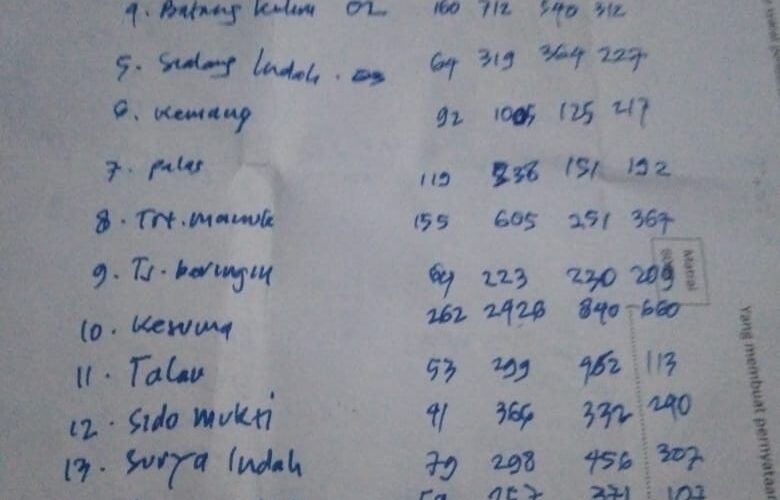 4. Batang Kulim 02 160 712 540 312
5. Sialang Indah. 03 64 319 364 227
6. Kemang 92 1005 125 217
7. palas 119 836 151 192
8. Trt. 155 605 251 367
9. Ts. beringin 64 223 230 209
10. Kesuma 262 2426 840 660
11. Talau 53 299 952 113
12. Sido mukti 41 366 332 240
13. Surya Indah 79 298 456 307
257 271 102
Yang membuat pernyataan